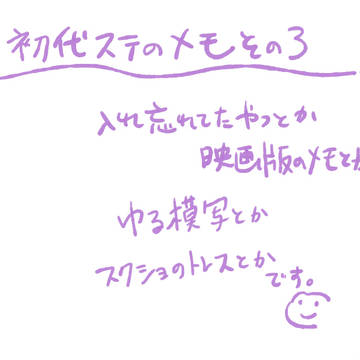 初代ステのメモその3
入れ忘れてたやつとか
映画版のメモとか
ゆる模写とか
スクショのトレスとか
です。